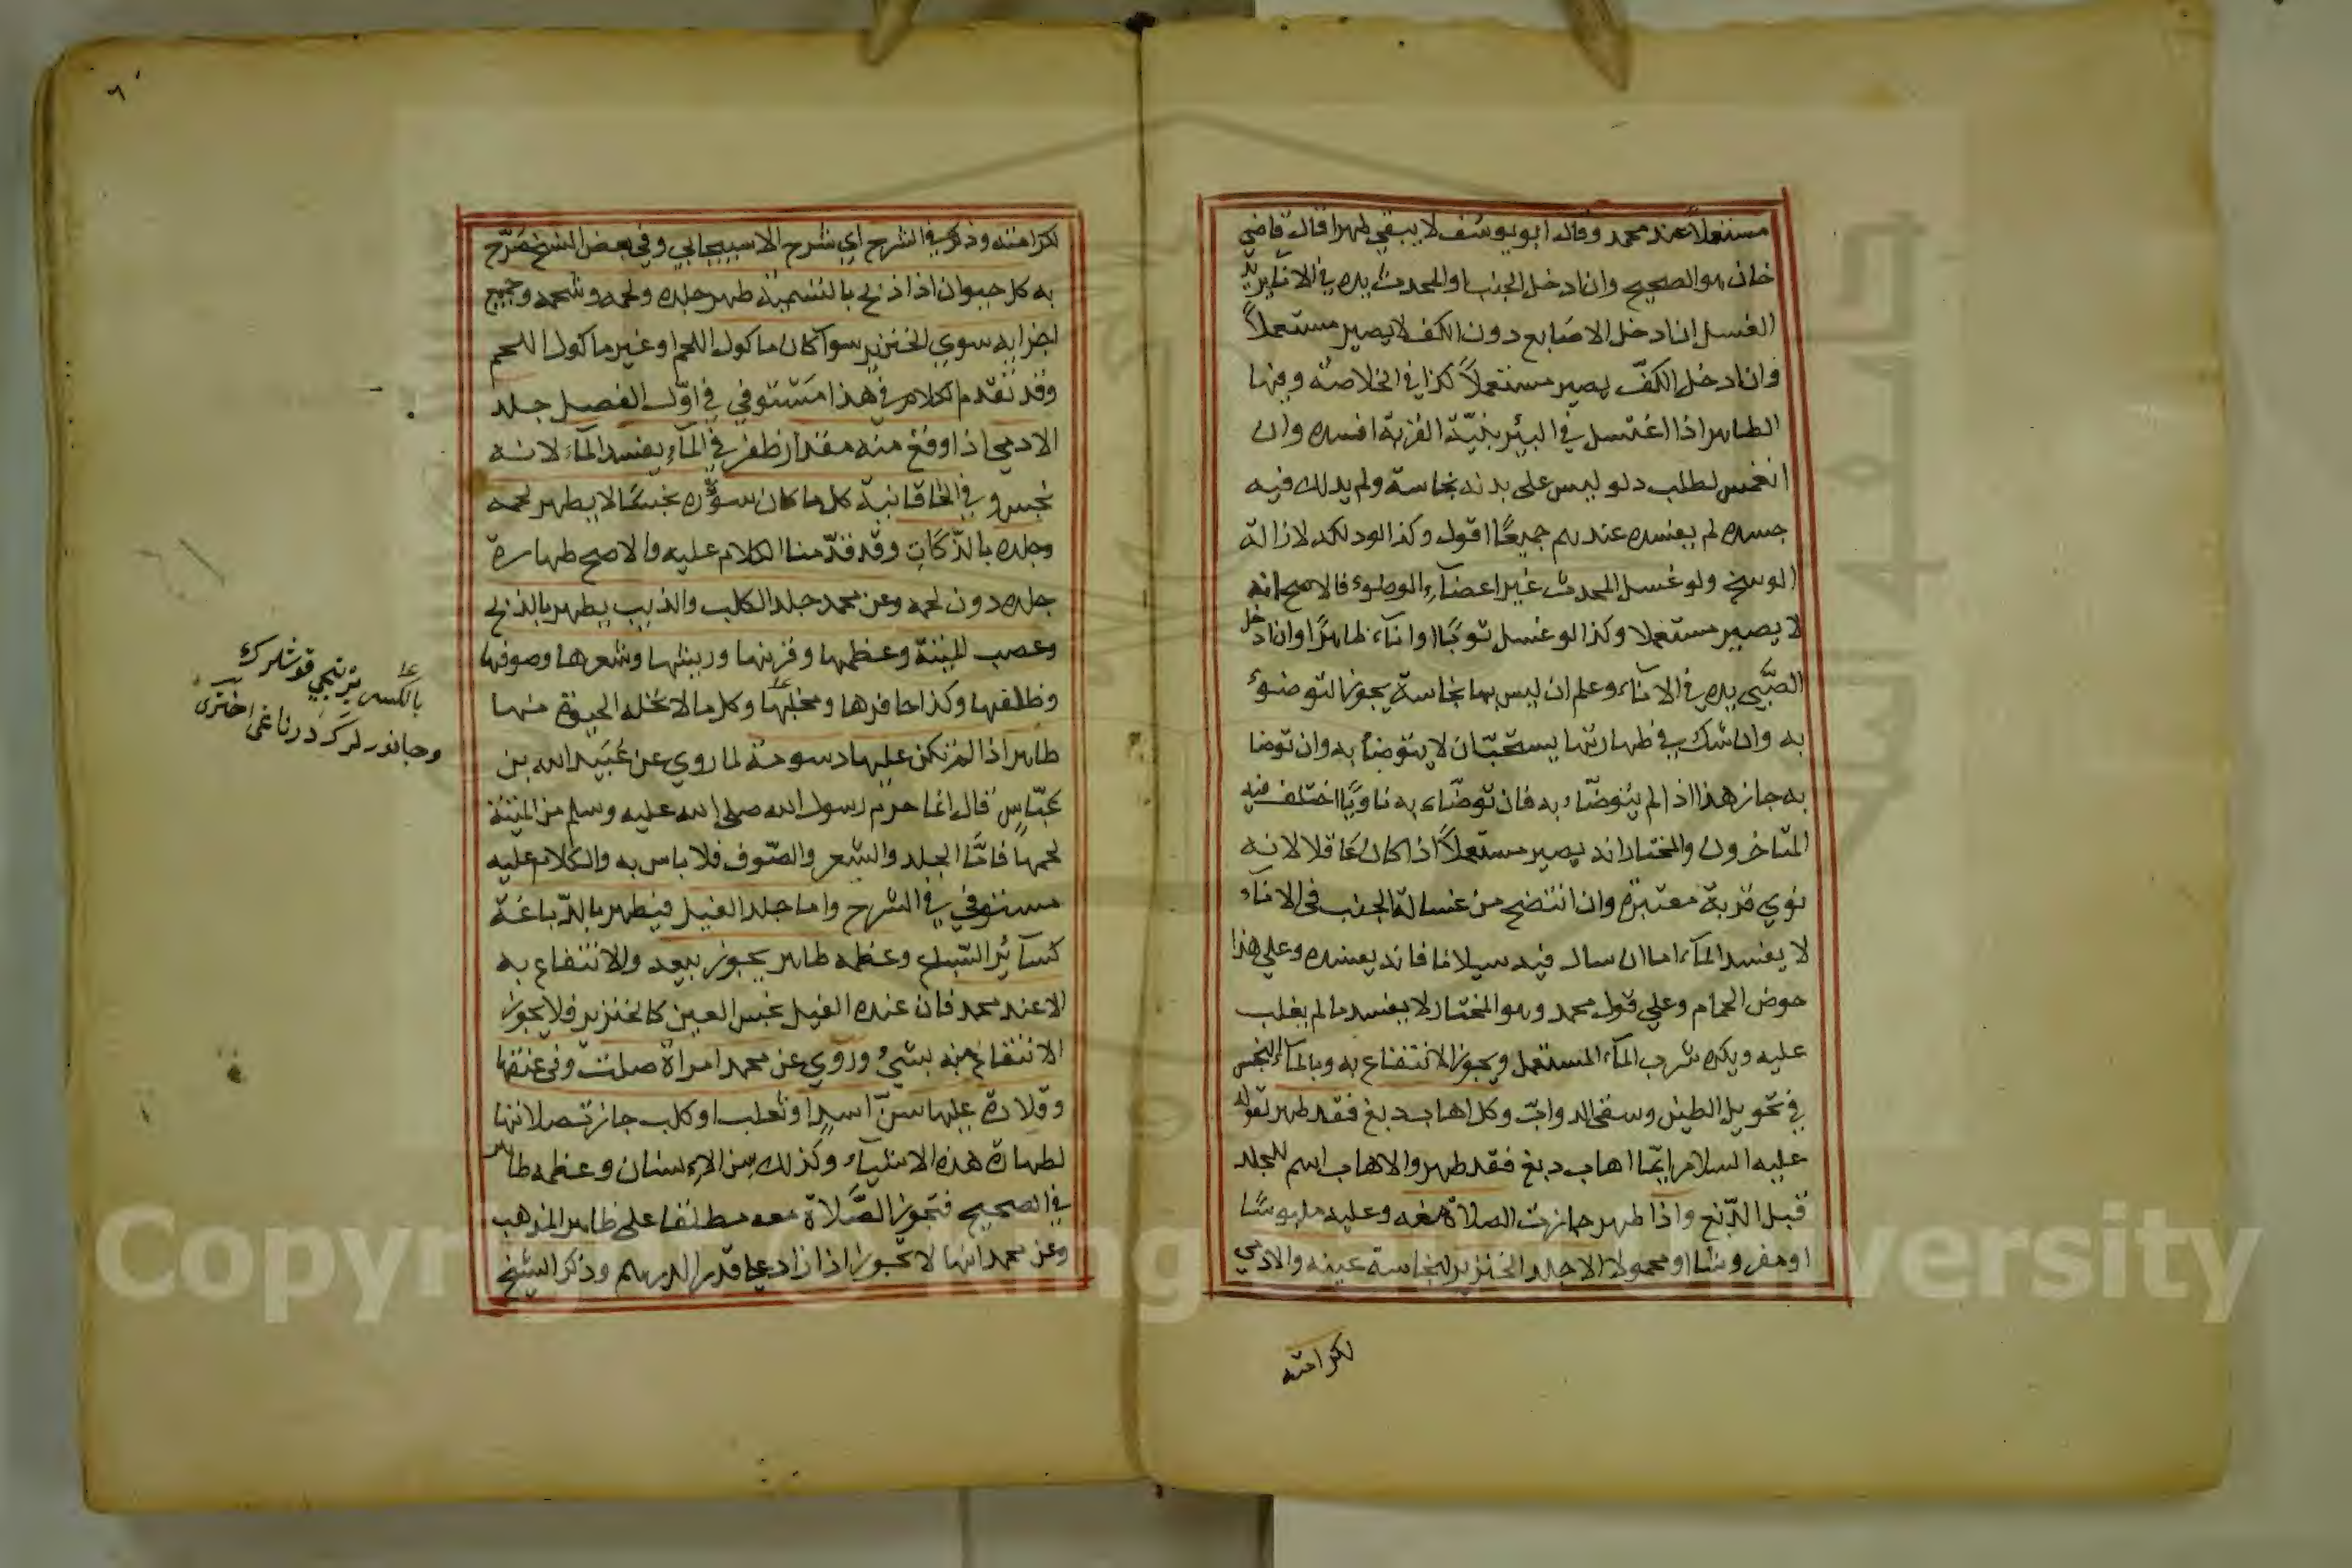 مستعملا عند محمد وقال ابو يوسف لا يبقي طهرا قال قاضي
خان هو الصحيح وان ادخل الجنب او المحدث يده في الاناء يريد
الغسل ان ادخل الاصابع دون الكف لا يصير مستعملاً
وان ادخل الكفّ يصير مستعملاً كذا في الخلاصة ومنها
الطاهر اذا اغتسل في البئر بنيّة القربة افسده وان
انغمس لطلب دلو ليس على بدنه نجاسة ولم يدلك فيه
جسده لم يفسده عندهم جميعًا اقول وكذا لو دلكه لازالة
الوسخ ولو غسل المحدث غير اعضاء الوضوء فالاصح انه
لا يصير مستعملا وكذا لو غسل ثوبًا او اناء طاهرًا وان ادخل
الصّبي يده في الاناء وعلم ان ليس بها نجاسة يجوز التوضوء
به وان شك في طهارتها يستحبّ ان لا يتوضأ به وان توضا
به جاز هذا اذا لم يتوضّاء به فان توضّاء به ناويًا اختلف فيه
المتاخرون والمختار انه يصير مستعملاً اذا كان عاقلا لانه
نوي قربة معتبرة وان انتضح من غسالة الجنب فى الاناء
لا يفسد الماء اما ان سال فيه سيلانا فانه يفسده وعلي هذا
حوض الحمام وعلي قول محمد وهو المختار لا يفسد ما لم يغلب
عليه ويكره شرب الماء المستعمل ويجوز الانتفاع به وبالماء النجس
في تحويل الطين وسقي الدوابّ وكل اهاب دبغ فقد طهر لقوله
عليه السلام ايّما اهاب دبغ فقد طهر والاهاب اسم للجلد
قبل الدّبغ واذا طهر جازت الصلاة معه وعليه ملبوسًا
او مفروشا او محمولا الا جلد الخنزير لنجاسة عينه والادمي
لكرامته
٦
لكرامته وذكر في الشرح اي شرح الاسبيجابي وفي بعض النسخ صرّح
به كل حيوان اذا ذبح بالتسمية طهر جلده ولحمه وشحمه وجميع
اجزايه سوي الخنزير سوآ كان ماكول اللحم او غير ماكول اللحم
وقد تقدم الكلام في هذا مستوفي في اوّل الفصل جلد
الادمي اذا وقع منه مقدار ظفر في الماء يفسد الماء لانه
نجس وفي الخاقانية كل ما كان سوره نجسًا لا يطهر لحمه
وجلده بالذّكاتِ وقد قدّمنا الكلام عليه والاصح طهارة
جلده دون لحمه وعن محمد جلد الكلب والذيب يطهر بالذبح
وعصب الميتة وعظمها وقرنها وريشها وشعرها وصوفها
وظلفها وكذا حافرها ومخلبها وكل ما لا تحله الحيوة منها
طاهر اذا لم تكن عليها دسومة لما روي عن عُبَيد الله بن
عبّاسٍ قال انما حرّم رسول الله صلى الله عليه وسلم من الميتة
لحمها فامّا الجلد والشعر والصّوف فلا باس به والكلام عليه
مستوفي في الشرح واما جلد الفيل فيطهر بالدّباغة
كسآئر السّباع وعظمه طاهر يجوز بيعه والانتفاع به
الا عند محمد فان عنده الفيل نجس العين كالخنزير فلا يجوز
الانتفاع منه بشيء وروي عن محمد امراة صلت وفى عنقها
وقلادة عليها سنّ اسدٍ او ثعلب او كلب جازت صلاتها
لطهارة هذه الاشياء وكذلك سن الاِنسان وعظمه طاهر
في الصحيح فتجوز الصَّلاة معه مطلقا على ظاهر المذهب
وعن محمد انها لا تجوز اذا زاد على قدر الدرهم وذكر الشيخ
بالكسر يرتجي قوشلرك
وجانورلرك درناغى اخترى